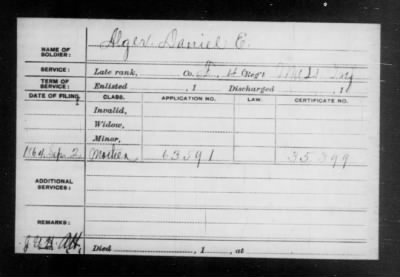 NAME OF SOLDIER: Alger, Daniel E.
SERVICE: Late rank, Co. 4 Reg't Inf
TERM OF SERVICE: Enlisted , 1 Discharged , 1
DATE OF FILING. CLASS. APPLICATION NO. LAW. CERTIFICATE NO.
Invalid,
Widow,
Minor,
1864 2 Mother 63591 35399
ADDITIONAL SERVICES:
REMARKS:
Died , 1 , at